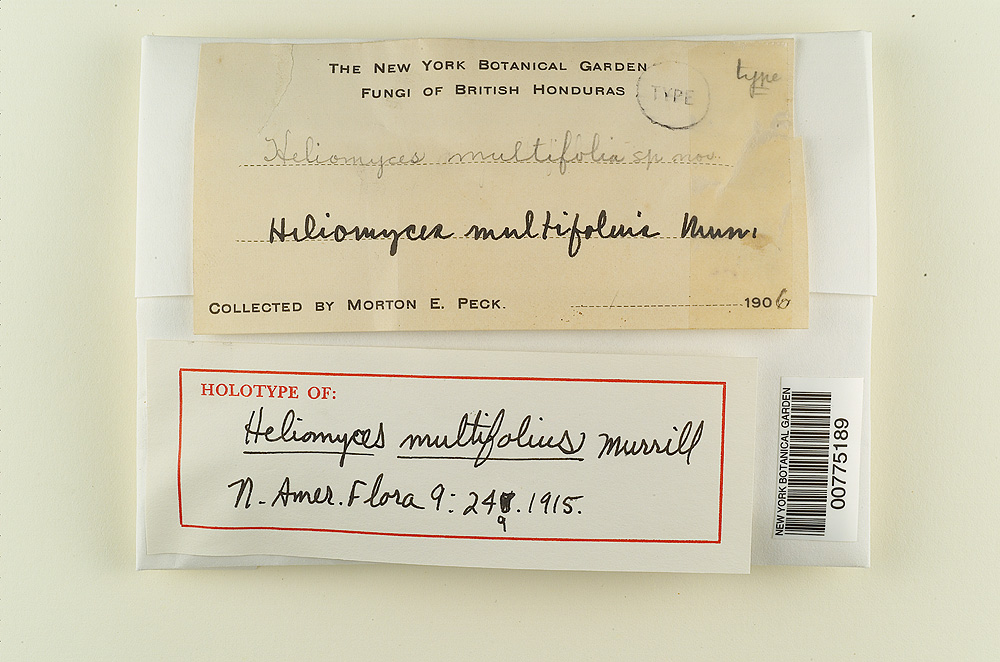 THE NEW YORK BOTANICAL GARDEN
FUNGI OF BRITISH HONDURAS
TYPE
type
Heliomyces multifolia sp nov.
Heliomyces multifolius Murr.
COLLECTED BY MORTON E. PECK.
1906
HOLOTYPE OF:
Heliomyces multifolius Murrill
N. Amer. Flora 9: 249. 1915.
NEW YORK BOTANICAL GARDEN
00775189